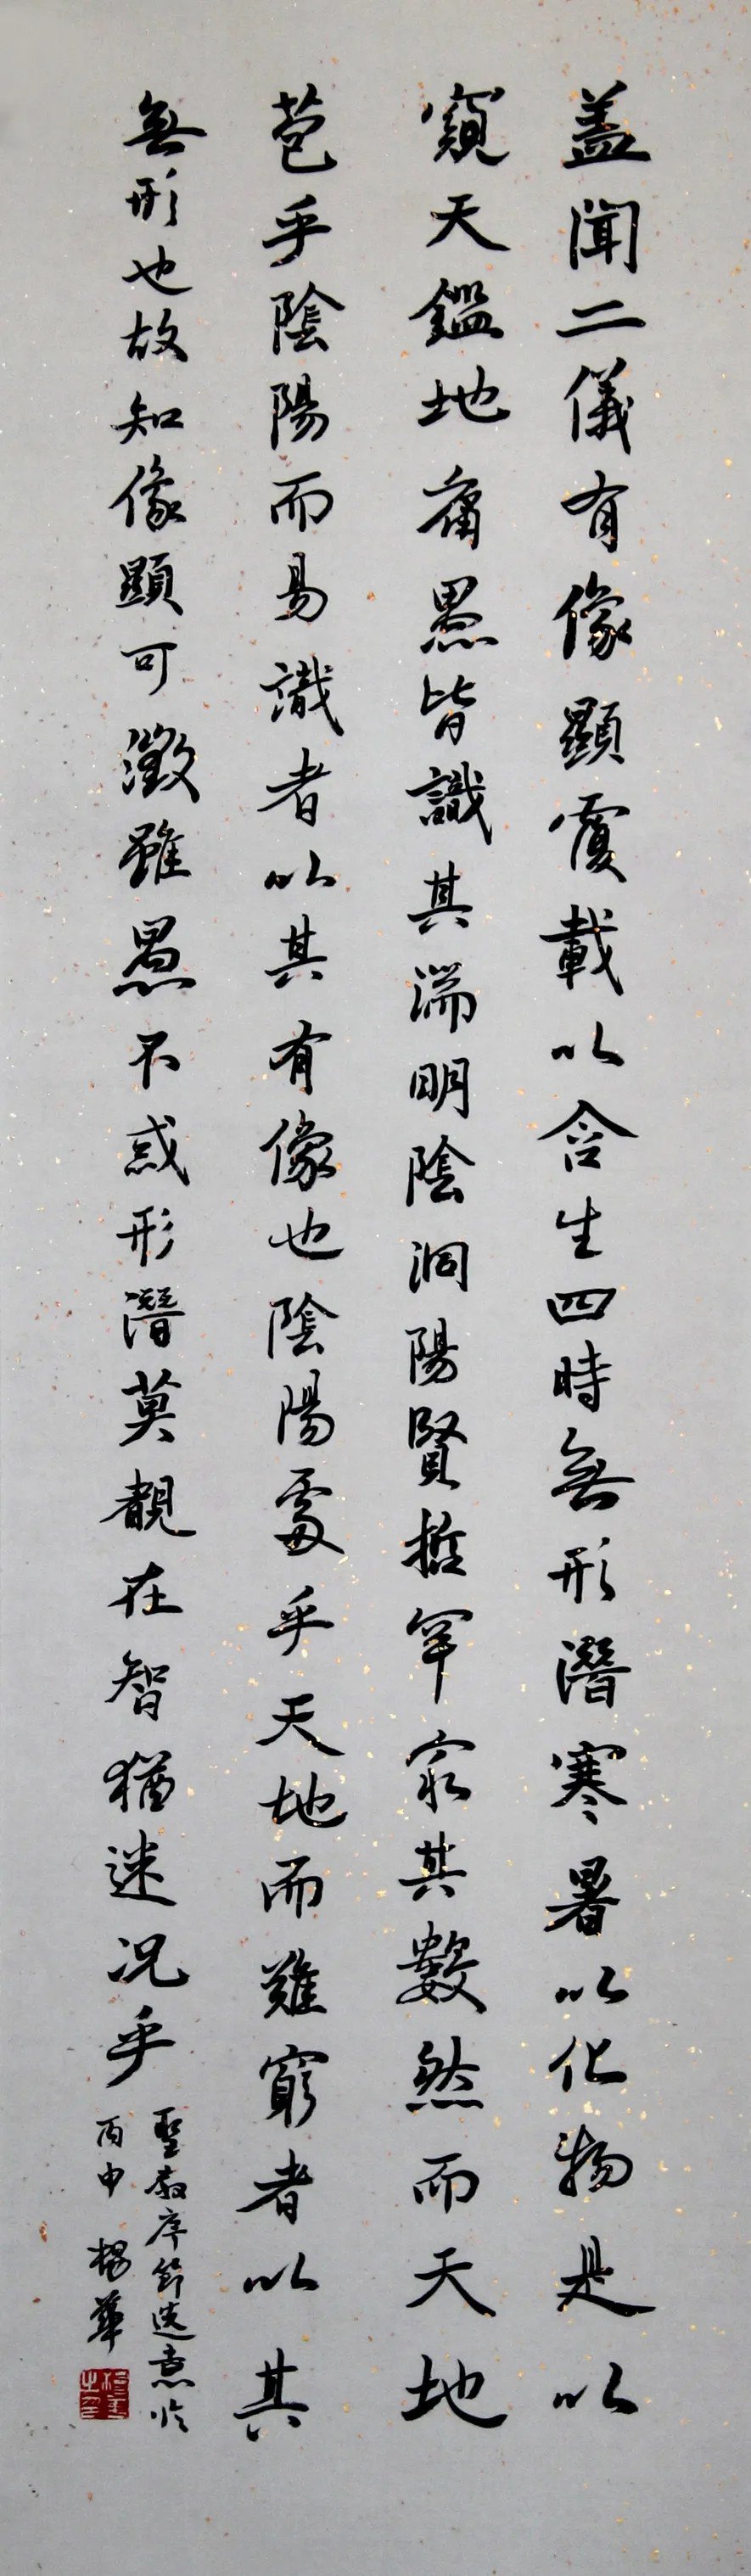 蓋聞二儀有像顯覆載以含生四時無形潛寒暑以化物是以
窺天鑑地庸愚皆識其端明陰洞陽賢哲罕窮其數然而天地
苞乎陰陽而易識者以其有像也陰陽處乎天地而難窮者以其
無形也故知像顯可徵雖愚不惑形潛莫覩在智猶迷況乎
聖教序節選意臨
丙申 楊華